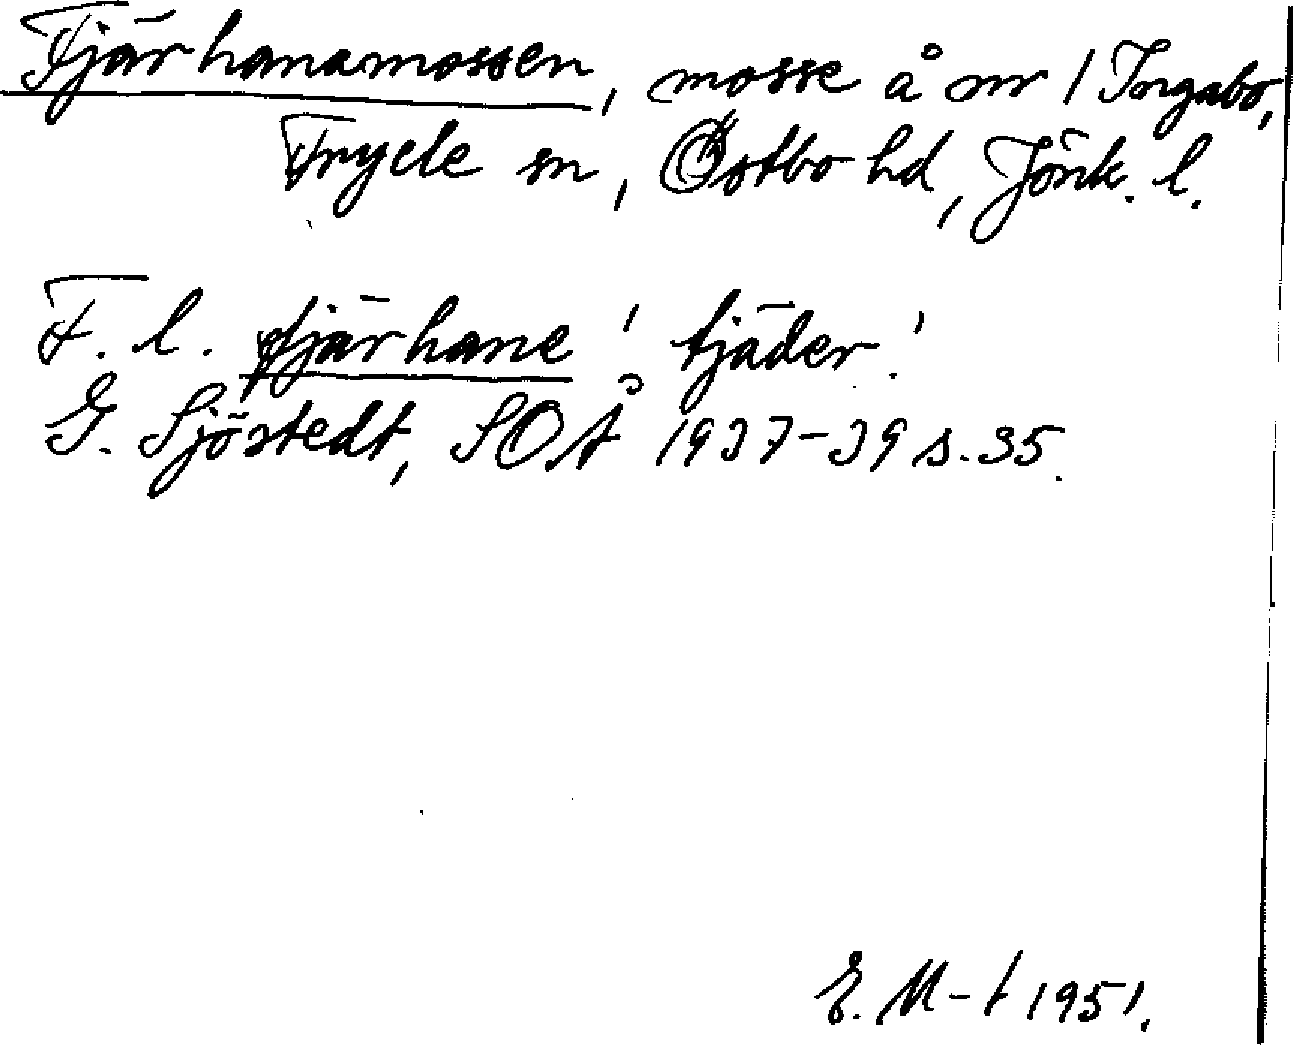 Fjärhanamossen, mosse å nr 1 Ingabo,
Fryele sn, Östbo hd, Jönk. l.
F. l. fjärhane 'tjäder'.
G. Sjöstedt, SOÅ 1937-39 s. 35.
E. M-t 1951.